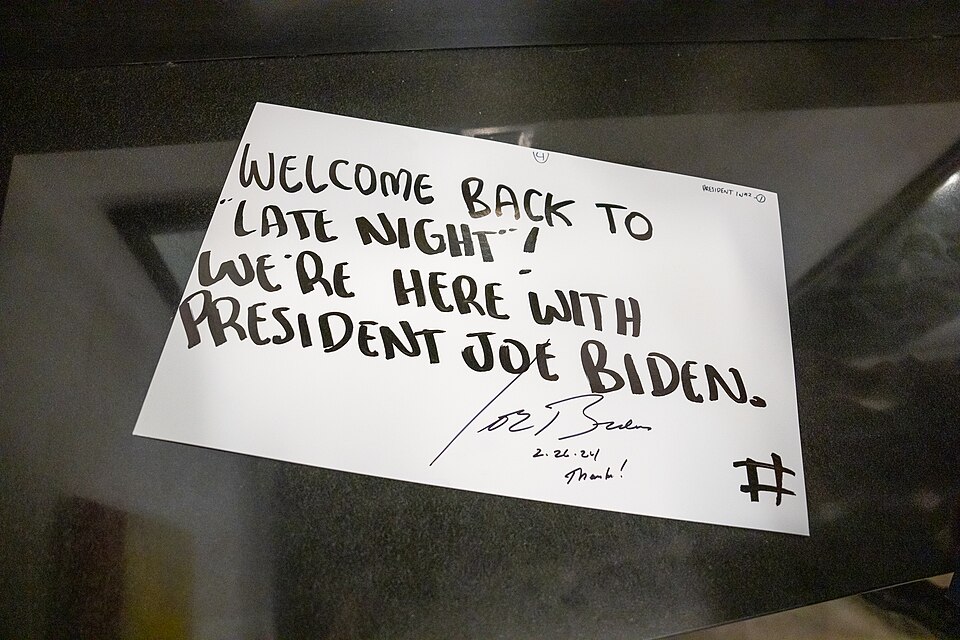 4
PRESIDENT INT2 - 1
WELCOME BACK TO
"LATE NIGHT"!
WE'RE HERE WITH
PRESIDENT JOE BIDEN.
Joe Biden
2.26.24
Thanks!
#